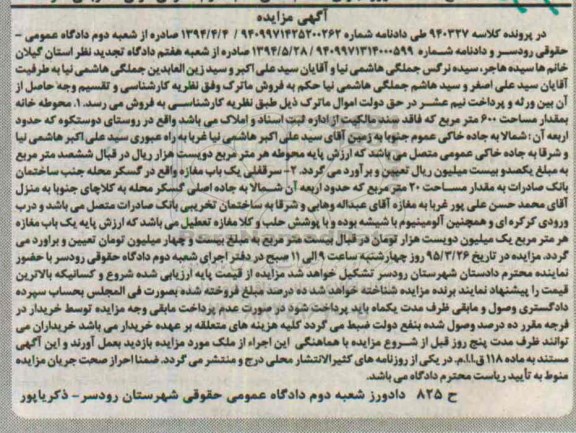 آگهی مزایده
در پرونده کلاسه ۹۴۰۳۲۷ طی دادنامه شماره ۹۴۰۹۹۷۱۴۲۵۲۰۰۲۶۲ - ۱۳۹۴/۴/۴ صادره از شعبه دوم دادگاه عمومی -
حقوقی رودسر و دادنامه شماره ۹۴۰۹۹۷۱۳۱۴۰۰۰۵۹۹ - ۱۳۹۴/۵/۲۸ صادره از شعبه هفتم دادگاه تجدید نظر استان گیلان
خانم ها سیده هاجر، سیده نرگس جملگی هاشمی نیا و آقایان سید علی اکبر و سید زین العابدین جملگی هاشمی نیا به طرفیت
آقایان سید علی اصغر و سید هاشم جملگی هاشمی نیا حکم به فروش ماترک وفق نظریه کارشناسی و تقسیم وجه حاصل از
آن بین ورثه و پرداخت نیم عشر در حق دولت اموال ماترک ذیل طبق نظریه کارشناسی به فروش می رسد. ۱. محوطه خانه
بمقدار مساحت ۶۰۰ متر مربع که فاقد سند مالکیت از اداره ثبت اسناد و املاک می باشد واقع در روستای دوستکوه که حدود
اربعه آن : شمالا به جاده خاکی عموم جنوبا به زمین آقای سید علی اکبر هاشمی نیا غربا به راه عبوری سید علی اکبر هاشمی نیا
و شرقا به جاده خاکی عمومی متصل می باشد که ارزش پایه محوطه هر متر مربع دویست هزار ریال در قبال ششصد متر مربع
به مبلغ یکصدو بیست میلیون ریال تعیین و برآورد می گردد. ۲- سرقفلی یک باب مغازه واقع در گسکر محله جنب ساختمان
بانک صادرات به مقدار مساحت ۲۰ متر مربع که حدود اربعه آن شمالا به جاده اصلی گسکر محله به کلاچای جنوبا به منزل
آقای محمد حسن علی پور غربا به مغازه آقای عبداله وهابی و شرقا به ساختمان تخریبی بانک صادرات متصل می باشد و درب
ورودی کرکره ای و همچنین آلومینیوم با شیشه بوده و با پوشش حلب و کلا مغازه تعطیل می باشد که ارزش پایه یک باب مغازه
هر متر مربع یک میلیون دویست هزار تومان در قبال بیست متر مربع به مبلغ بیست و چهار میلیون تومان تعیین و براورد می
گردد. مزایده در تاریخ ۹۵/۳/۲۶ روز چهارشنبه ساعت ۹ الی ۱۱ صبح در دفتر اجرای شعبه دوم دادگاه حقوقی رودسر با حضور
نماینده محترم دادستان شهرستان رودسر تشکیل خواهد شد مزایده از قیمت پایه ارزیابی شده شروع و کسانیکه بالاترین
قیمت را پیشنهاد نمایند برنده مزایده شناخته خواهد شد ده درصد مبلغ فروخته شده بصورت فی المجلس بحساب سپرده
دادگستری وصول و مابقی ظرف مدت یکماه باید پرداخت شود در صورت عدم پرداخت مابقی وجه مزایده توسط خریدار در
فرجه مقرر ده درصد وصول شده بنفع دولت ضبط می گردد کلیه هزینه های متعلقه بر عهده خریدار می باشد خریداران می
توانند ظرف مدت پنج روز قبل از شروع مزایده با هماهنگی این اجراء از ملک مورد مزایده بازدید بعمل آورند و این آگهی
مستند به ماده ۱۱۸ ق.ا.ا.م. در یکی از روزنامه های کثیرالانتشار محلی درج و منتشر می گردد. ضمنا احراز صحت جریان مزایده
منوط به تأیید ریاست محترم دادگاه می باشد.
ح ۸۲۵ دادورز شعبه دوم دادگاه عمومی حقوقی شهرستان رودسر - ذکریاپور